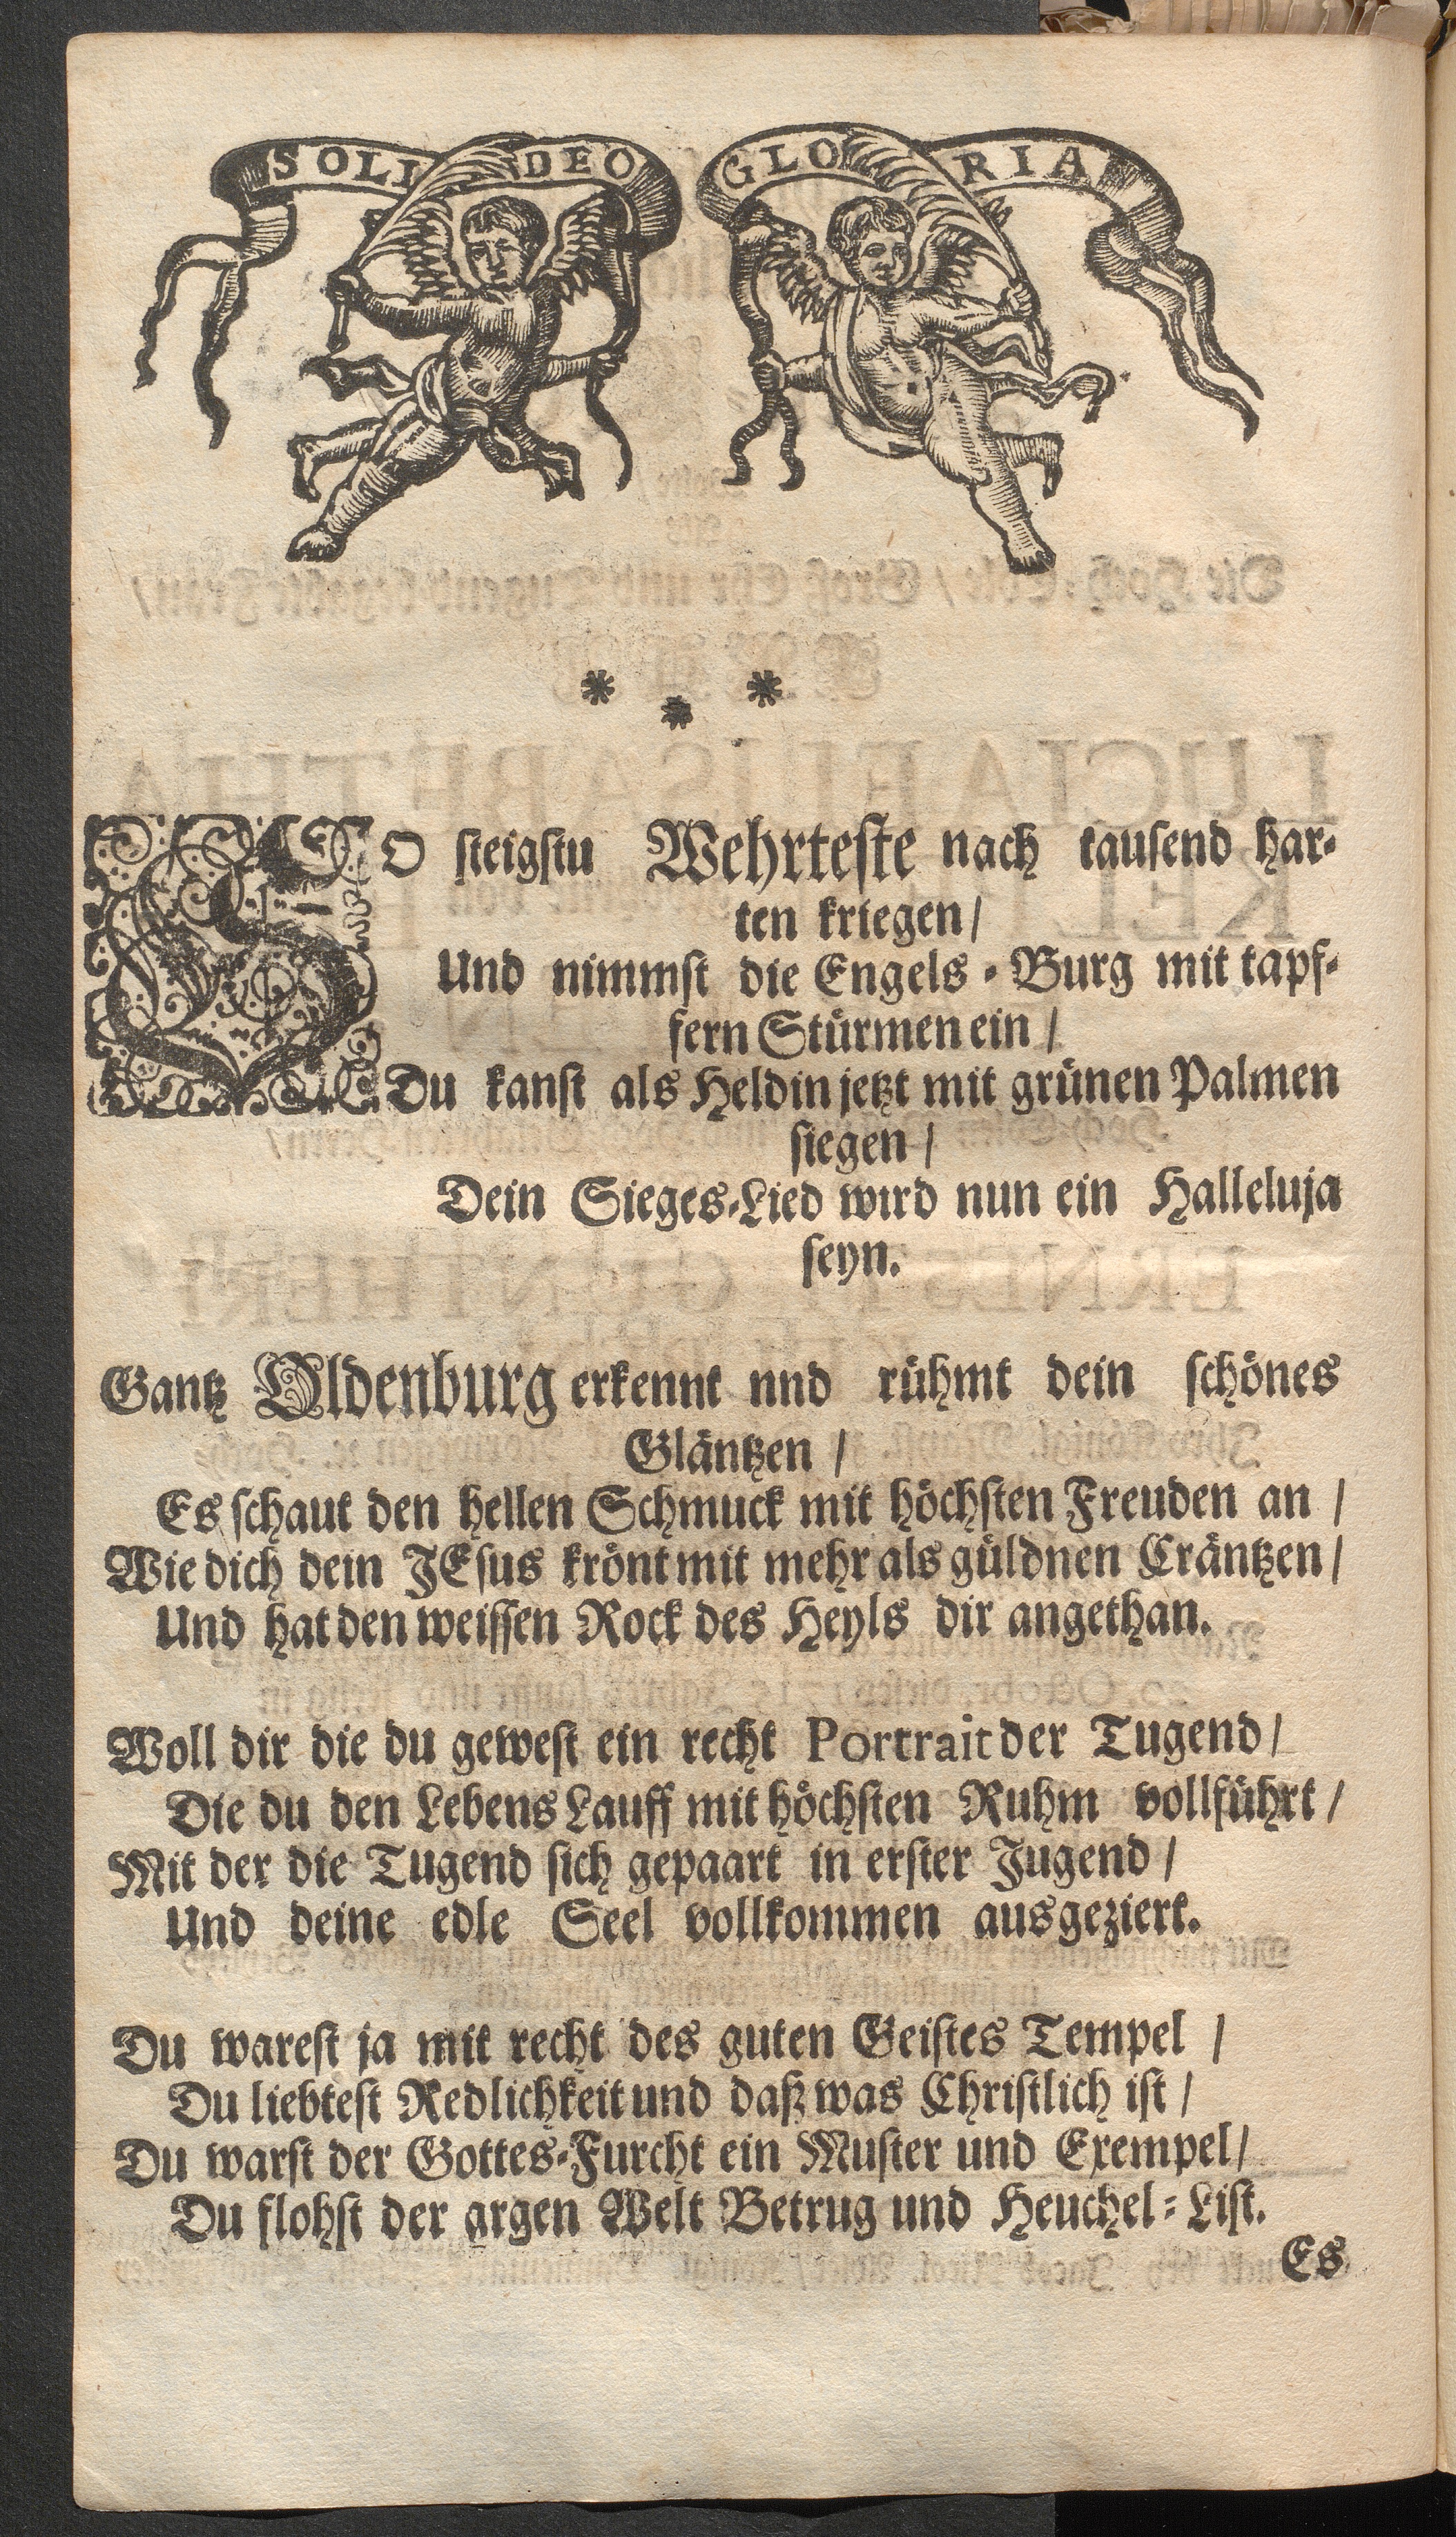 SOLI DEO GLORIA
* * *
SO steigstu Wehrteste nach tausend har-
ten kriegen/
Und nimmst die Engels-Burg mit tapf-
fern Stürmen ein /
Du kanst als Heldin jetzt mit grünen Palmen
siegen /
Dein Sieges-Lied wird nun ein Halleluja
seyn.
Gantz Oldenburg erkennt nnd rühmt dein schönes
Gläntzen /
Es schaut den hellen Schmuck mit höchsten Freuden an /
Wie dich dein JEsus krönt mit mehr als güldnen Cräntzen /
Und hat den weissen Rock des Heyls dir angethan.
Woll dir die du gewest ein recht Portrait der Tugend /
Die du den Lebens Lauff mit höchsten Ruhm vollführt /
Mit der die Tugend sich gepaart in erster Jugend /
Und deine edle Seel vollkommen ausgeziert.
Du warest ja mit recht des guten Geistes Tempel /
Du liebtest Redlichkeit und daß was Christlich ist /
Du warst der Gottes-Furcht ein Muster und Exempel /
Du flohst der argen Welt Betrug und Heuchel-List.
Es